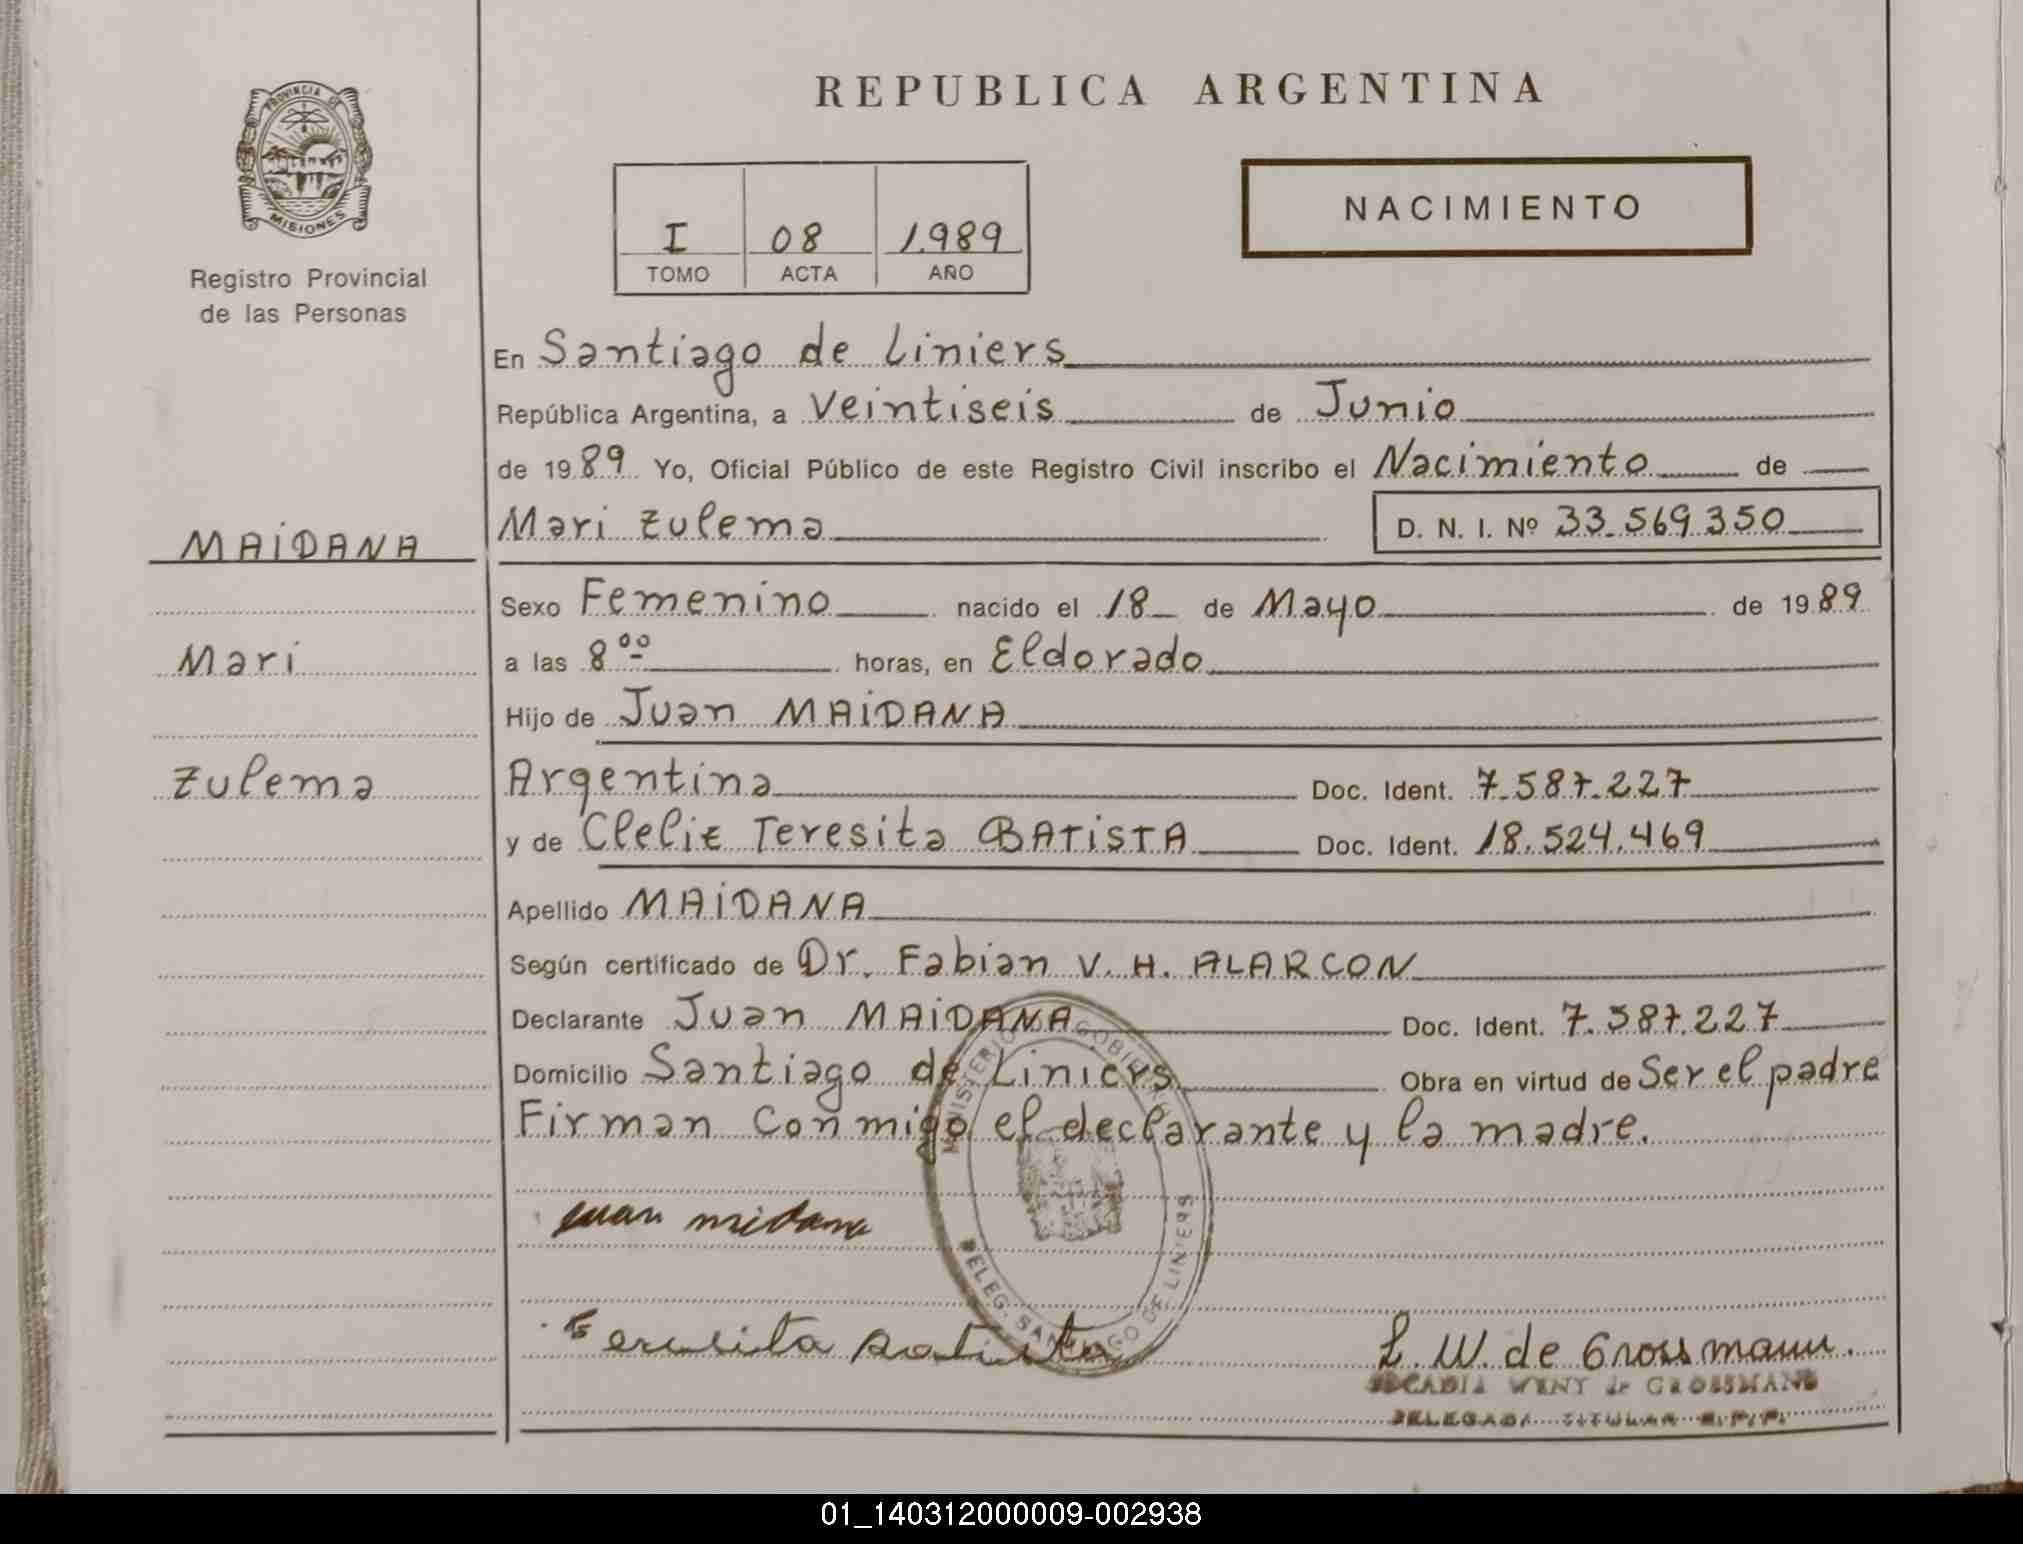 PROVINCIA DE
MISIONES
Registro Provincial
de las Personas
MAIDANA
Mari
Zulema
REPUBLICA ARGENTINA
I 08 1.989
TOMO ACTA AÑO
NACIMIENTO
En Santiago de Liniers
República Argentina, a Veintiseis de Junio
de 1989 Yo, Oficial Público de este Registro Civil inscribo el Nacimiento de
Mari Zulema D. N. I. Nº 33.569.350
Sexo Femenino nacido el 18 de Mayo de 1989
a las 8ºº horas, en Eldorado
Hijo de Juan MAIDANA
Argentina Doc. Ident. 7.587.227
y de Clelie Teresita BATISTA Doc. Ident. 18.524.469
Apellido MAIDANA
Según certificado de Dr. Fabian V. H. ALARCON
Declarante Juan MAIDANA Doc. Ident. 7.587.227
Domicilio Santiago de Liniers Obra en virtud de Ser el padre
Firman Conmigo el declarante y la madre.
MINISTERIO GOBIERNO
DELEG. SANTIAGO DE LINIERS
juan midana
Teresita Batista
L. W. de Grossmann.
WENY de GROSSMANN
DELEGADA TITULAR R.P.P.
01_140312000009-002938